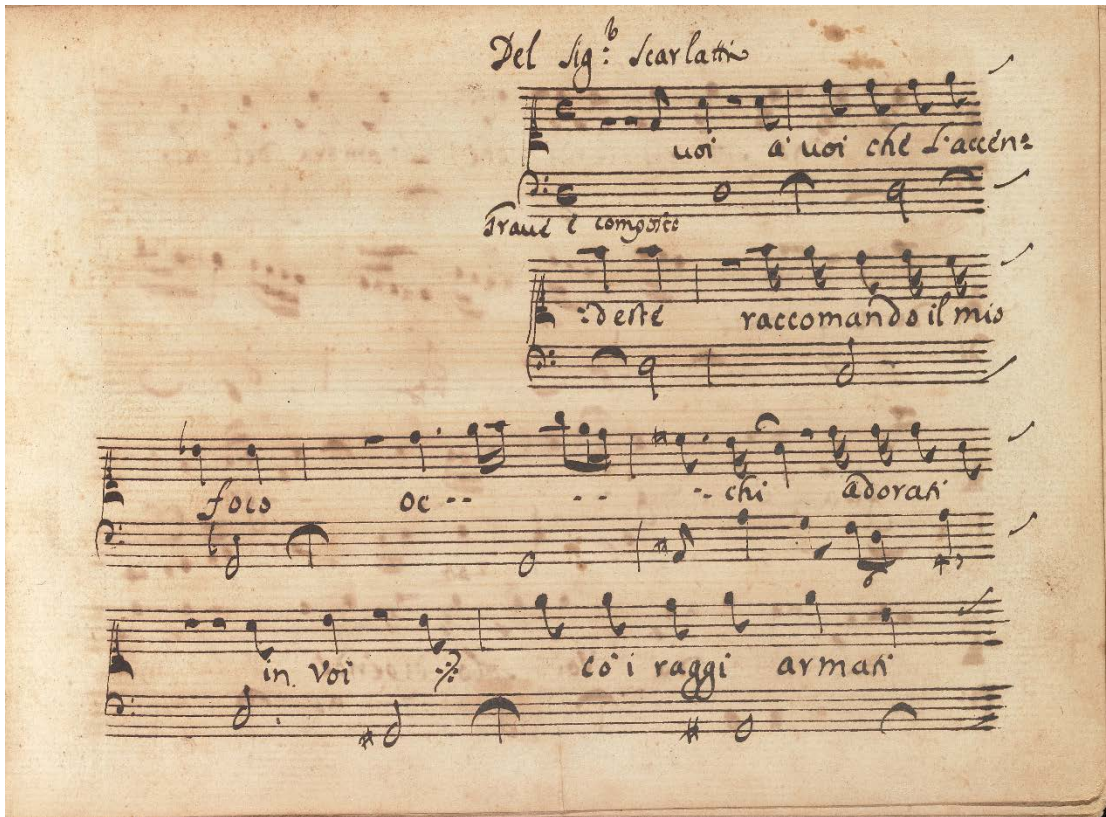 Del Sig:r Scarlatti
voi a' voi che l'accen=
Grave e composto
:deste raccomando il mio
foco oc-- -- --chi adorati
in voi :/: co' i raggi armati